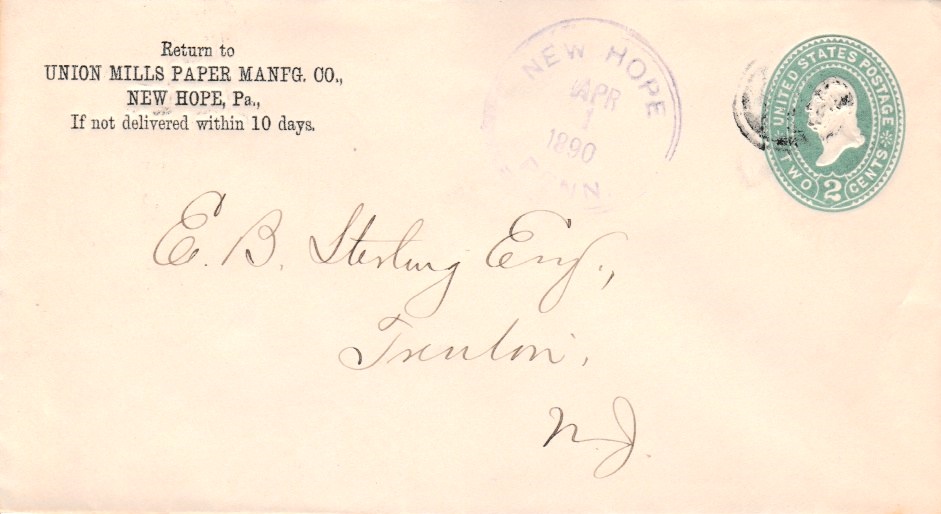 Return to
UNION MILLS PAPER MANFG. CO.,
NEW HOPE, Pa.,
If not delivered within 10 days.
NEW HOPE
APR
1
1890
PENN.
UNITED STATES POSTAGE
TWO 2 CENTS
E. B. Sterling Esq.,
Trenton,
N. J.